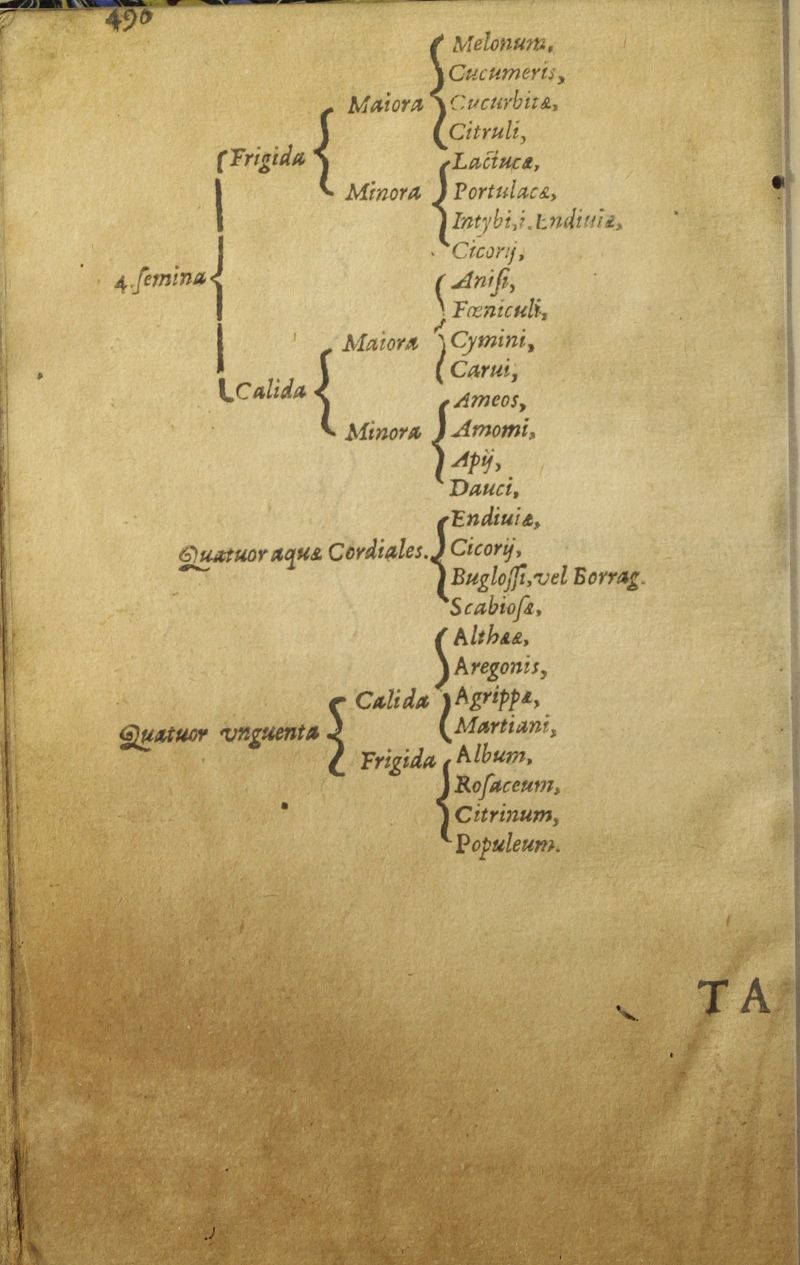 490
Melonum,
Cucumeris,
Maiora Cucurbitæ,
Citruli,
Frigida Lactucæ,
Minora Portulacæ,
Intybi,i.Endiuiæ,
Cicorij,
4.ſemina Aniſi,
Fœniculi,
Maiora Cymini,
Carui,
Calida Ameos,
Minora Amomi,
Apij,
Dauci,
Endiuiæ,
Quatuor aquæ Cordiales. Cicorij,
Bugloſſi,vel Borrag.
Scabioſæ,
Althææ,
Aregonis,
Calida Agrippæ,
Quatuor vnguenta Martiani,
Frigida Album,
Roſaceum,
Citrinum,
Populeum.
TA